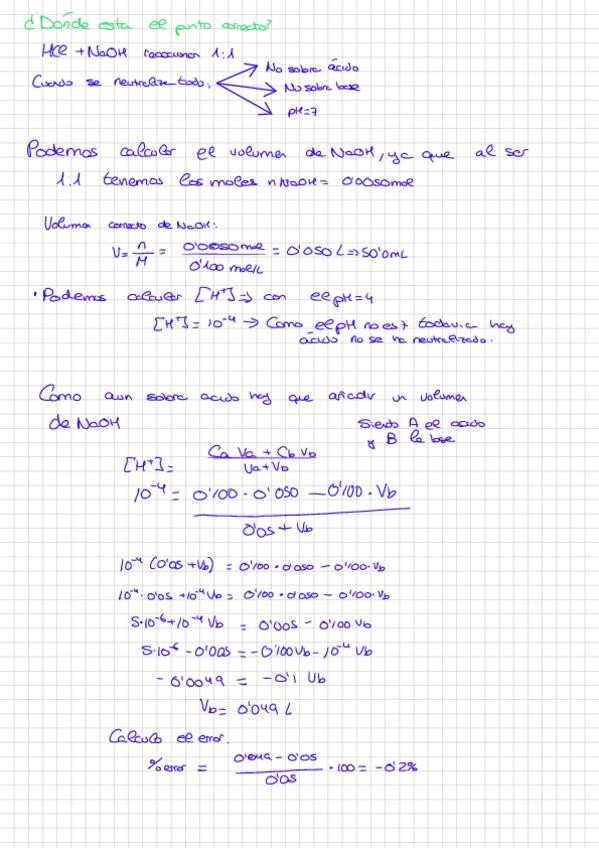 ¿Dónde esta el punto correcto?
HCl + NaOH reaccionan 1:1
No sobra ácido
Cuando se neutraliza todo: No sobra base
pH=7
Podemos calcular el volumen de NaOH, ya que al ser
1:1 tenemos los moles nNaOH = 0'0050mol
Volumen correcto de NaOH:
V = n/M = 0'0050mol / 0'100 mol/L = 0'050 L => 50'0mL
· Podemos calcular [H+] => con el pH=4
[H+] = 10^-4 → Como el pH no es 7 todavia hay
ácido no se ha neutralizado.
Como aun sobra acido hay que añadir un volumen
de NaOH
Siendo A el acido
y B la base
[H+] = Ca Va + Cb Vb / Va + Vb
10^-4 = 0'100 · 0'050 - 0'100 · Vb / 0'05 + Vb
10^-4 (0'05 + Vb) = 0'100 · 0'050 - 0'100 · Vb
10^-4 · 0'05 + 10^-4 Vb = 0'100 · 0'050 - 0'100 · Vb
5·10^-6 + 10^-4 Vb = 0'005 - 0'100 Vb
5·10^-6 - 0'005 = -0'100 Vb - 10^-4 Vb
-0'0049 = -0'1 Vb
Vb = 0'049 L
Calculo el error.
% error = 0'049 - 0'05 / 0'05 · 100 = -0'2%